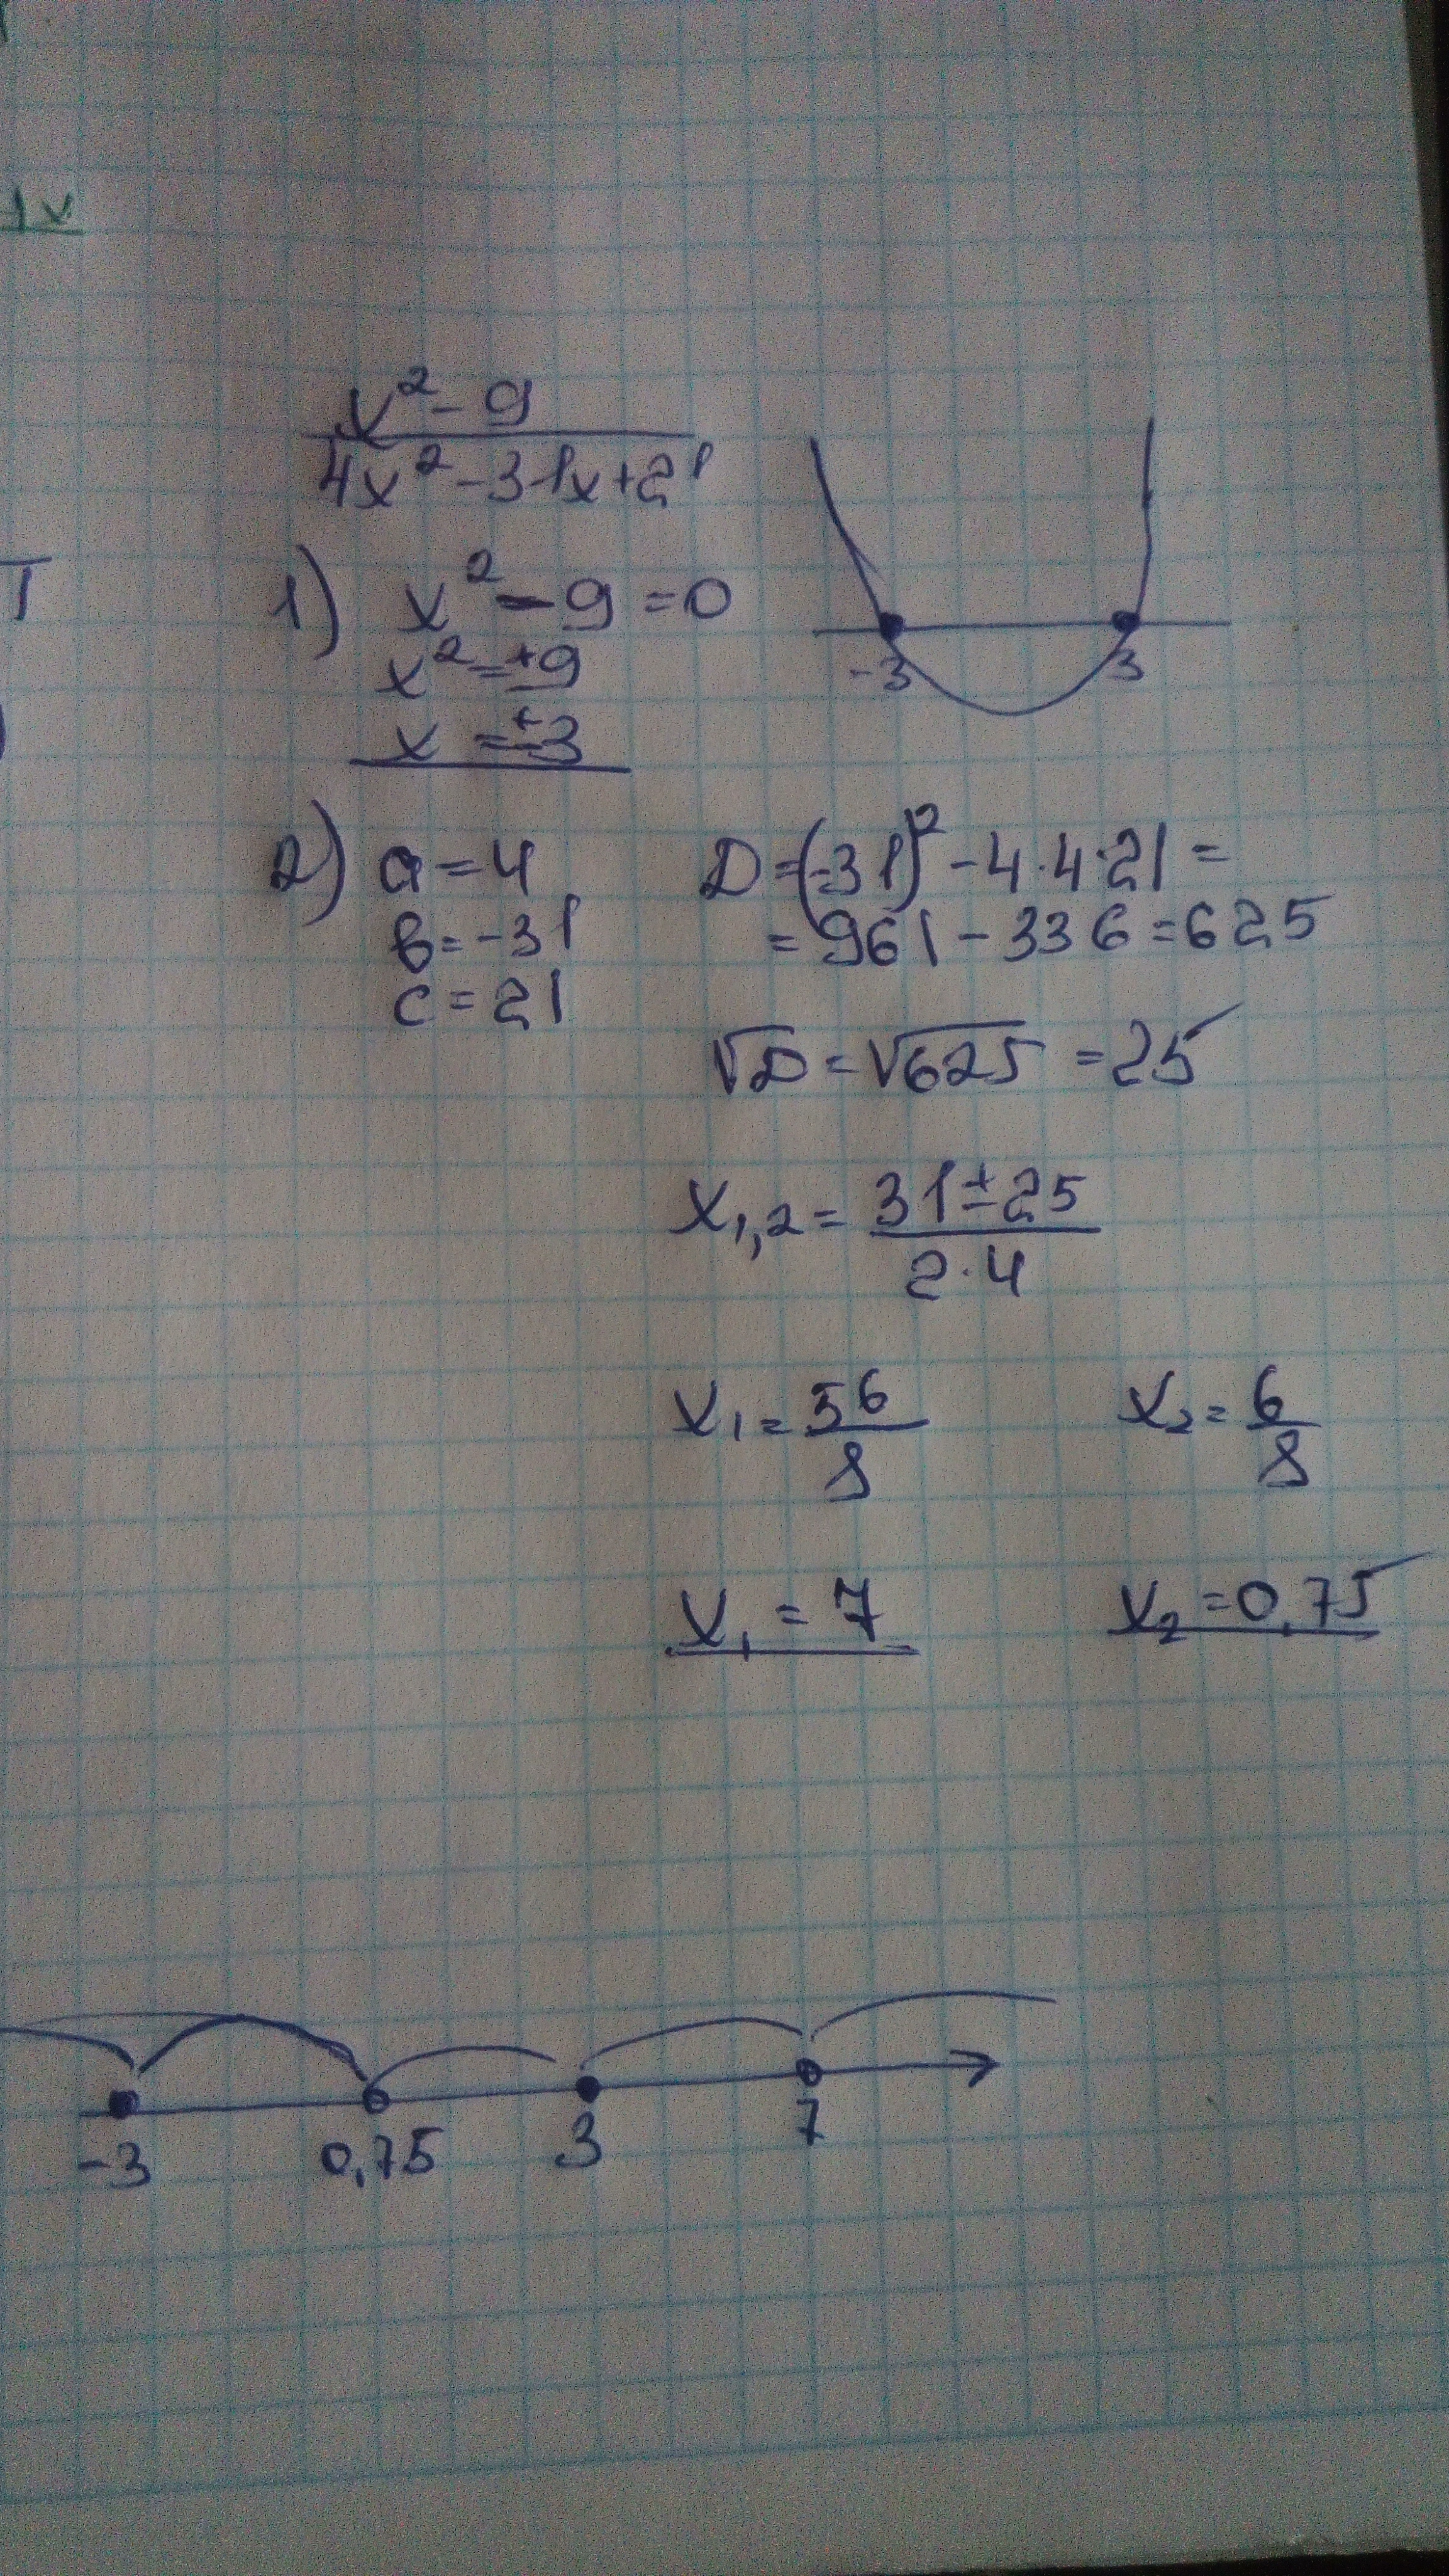 x² - 9
4x² - 31x + 21
1) x² - 9 = 0
x² = ±9
x = ±3
-3 3
2) a = 4 D = (-31)² - 4·4·21 =
в = -31 = 961 - 336 = 625
c = 21
√D = √625 = 25
x₁,₂ = 31 ± 25
2·4
x₁ = 56 x₂ = 6
8 8
x₁ = 7 x₂ = 0,75
-3 0,75 3 7